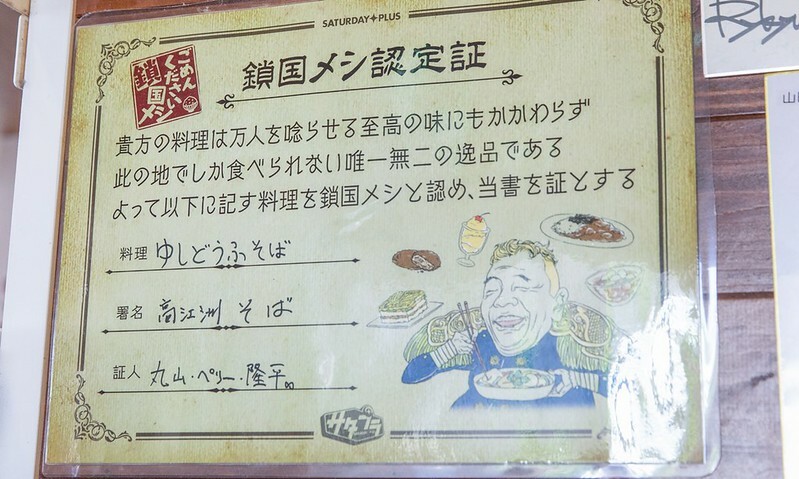 SATURDAY✦PLUS
ごめん
ください
鎖国メシ
鎖国メシ認定証
貴方の料理は万人を唸らせる至高の味にもかかわらず
此の地でしか食べられない唯一無二の逸品である
よって以下に記す料理を鎖国メシと認め、当書を証とする
料理 ゆしどうふそば
署名 高江洲 そば
証人 丸山・ペリー・隆平
サタプラ
山